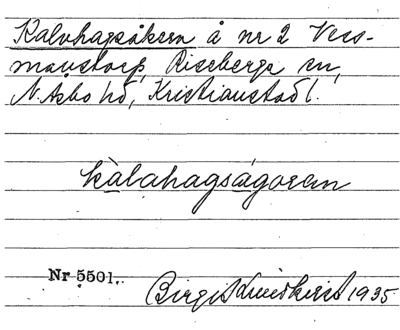 Kalvhagsåkern å nr 2 Vess-
maustorp, Riseberga sn,
N. Åsbo hd, Kristianstad l.
kàlahagságoren
Nr 5501.
Birgit 1935